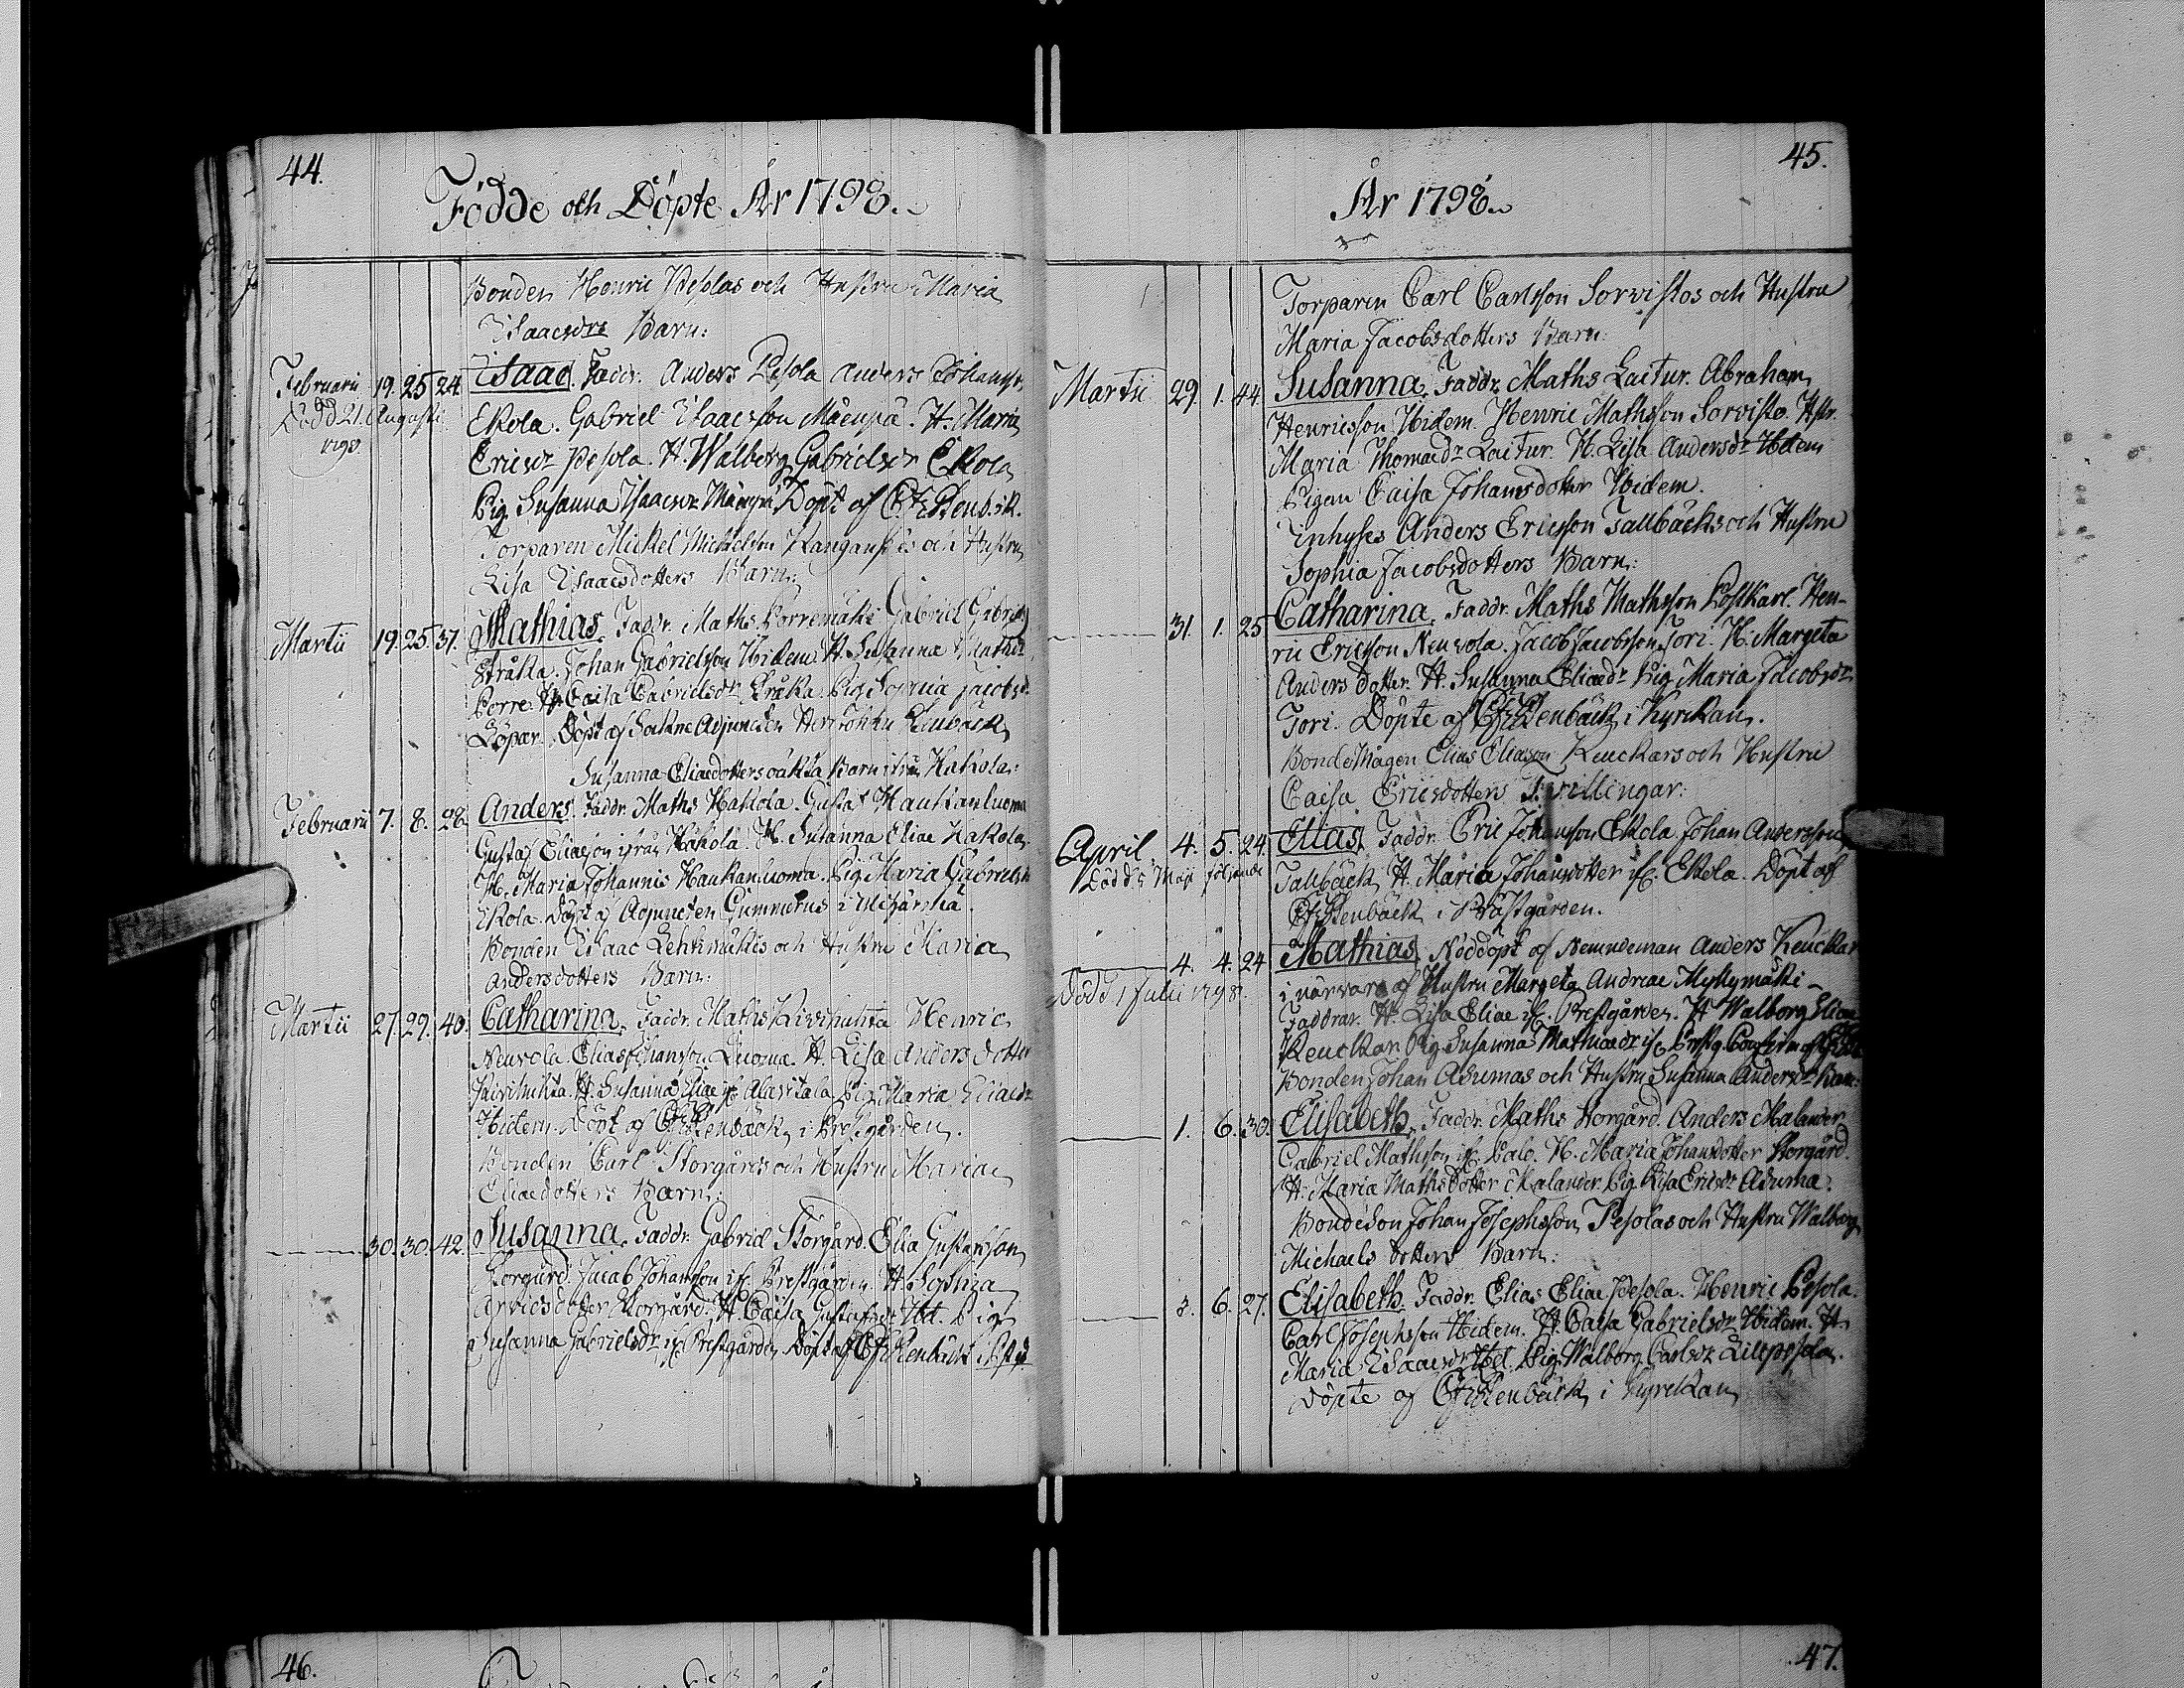 44.
Födde och Döpte År 1798.
Bonden Henric Pesolas och Hustru Maria
Isaacsdrs Barn:
Februarii 19. 25. 24. Isaac. Faddr. Anders Pesola Anders Johansf.
Död 21. Augusti Ekola. Gabriel Isaacsson Mäenpä. H. Maria
1798. Ericsdr Pesola. H. Walborg Gabrielsdr Ekola
Pig. Susanna Isaacsdr Mäenpä Döpt af
Torparen Mickel Michelsson och Hustru
Lisa Isaacsdotters Barn:
Martii 19. 25. 37. Mathias. Faddr. Maths Porremäki Gabriel
Stråka. Johan Gabrielsson Ibidem H. Susanna
Porre. H. Caisa Gabrielsdr Stråka. Pig. Sophia Jacobsdr
Döpt af Sockne Adjuncten Herr Johan
Susanna Eliaedotters oäkta Barn ifrån Hakola:
Februarii 7. 8. 28. Anders. Faddr. Maths Hakola. Gustaf Haukanluoma
Gustaf Eliaeson ifrån Hakola. H. Susanna Eliae Hakola.
H. Maria Johannis Haukanluoma. Pig. Maria Gabrielsdr
Ekola. Döpt af Adjuncten Gummerus i
Bonden Isaac och Hustru Maria
Andersdotters Barn:
Martii 27. 29. 40. Catharina. Faddr. Maths Kivihuhta Henric
Neuvola. Elias Johansson Luoma. H. Lisa Anders dotter
Kivihuhta. H. Susanna Eliae if. Alavitala Pig. Maria Eliaedr
Ibidem. Döpt af i Prestgården.
Bonden Carl Storgårds och Hustru Maria
Eliaedotters Barn:
30. 30. 42. Susanna. Faddr. Gabriel Storgård. Elia Gustafsson
Storgård. Jacob Johansson if. Prestgården. H. Sophia
dotter Storgård. H. Caisa Gustafsdr Ibd. Pig.
Susanna Gabrielsdr if. Prestgården Döpt af
45.
År 1798.
Torparen Carl Carlsson Sorvistos och Hustru
Maria Jacobsdotters Barn:
Martii 29. 1. 44. Susanna. Faddr. Maths Laitur. Abraham
Henricsson Ibidem. Henric Mathsson Sorvisto. Hstr.
Maria Thomaedr Laitur. H. Lisa Andersdr Ibidem
Pigan Caisa Johansdotter Ibidem.
Inhyses Anders Ericsson Tallbäcks och Hustru
Sophia Jacobsdotters Barn:
31. 1. 25 Catharina. Faddr. Maths Mathsson Postkarl. Hen-
ric Ericsson Neuvola. Jacob Jacobsson Tori. H. Margeta
Anders dotter. H. Susanna Eliaedr Pig. Maria Jacobsdr
Tori. Döpte af i Kyrckan.
BondeMågen Elias Eliaeson Keuckars och Hustru
Caisa Ericsdotters Tvillingar:
April 4. 5. 24. Elias. Faddr. Eric Johansson Ekola. Johan Andersson
Död 5 Maji följande Tallbäck. H. Maria Johansdotter if. Ekola. Döpt af
i Prästgården.
4. 4. 24 Mathias. Nöddöpt af Nemndeman Anders Keuckar
Död 1 Julii 1798. i närvaro af Hustru Margeta Andreae Myllymäki –
Faddrar. H. Lisa Eliae if. Prestgården. H. Walborg Eliae
Keuckar Pig. Susanna Mathiaedr if. Prestg.
Bonden Johan Asumas och Hustru Susanna Andersdr Barn:
1. 6. 30. Elisabeth. Faddr. Maths Storgård. Anders Malander
Gabriel Mathsson if. Palo. H. Maria Johansdotter Storgård.
H. Maria Mathsdotter Malander. Pig. Lisa Ericsdr Asuma.
BondeSon Johan Josephsson Pesolas och Hustru Walborg
Michaels dotters Barn:
3. 6. 27. Elisabeth. Faddr. Elias Eliae Pesola. Henric Pesola.
Carl Josephsson Ibidem. H. Caisa Gabrielsdr Ibidem. H.
Maria Isaacsdr Ibd. Pig. Walborg Carlsdr Lillpesola.
Döpte af i Kyrckan
46.
47.